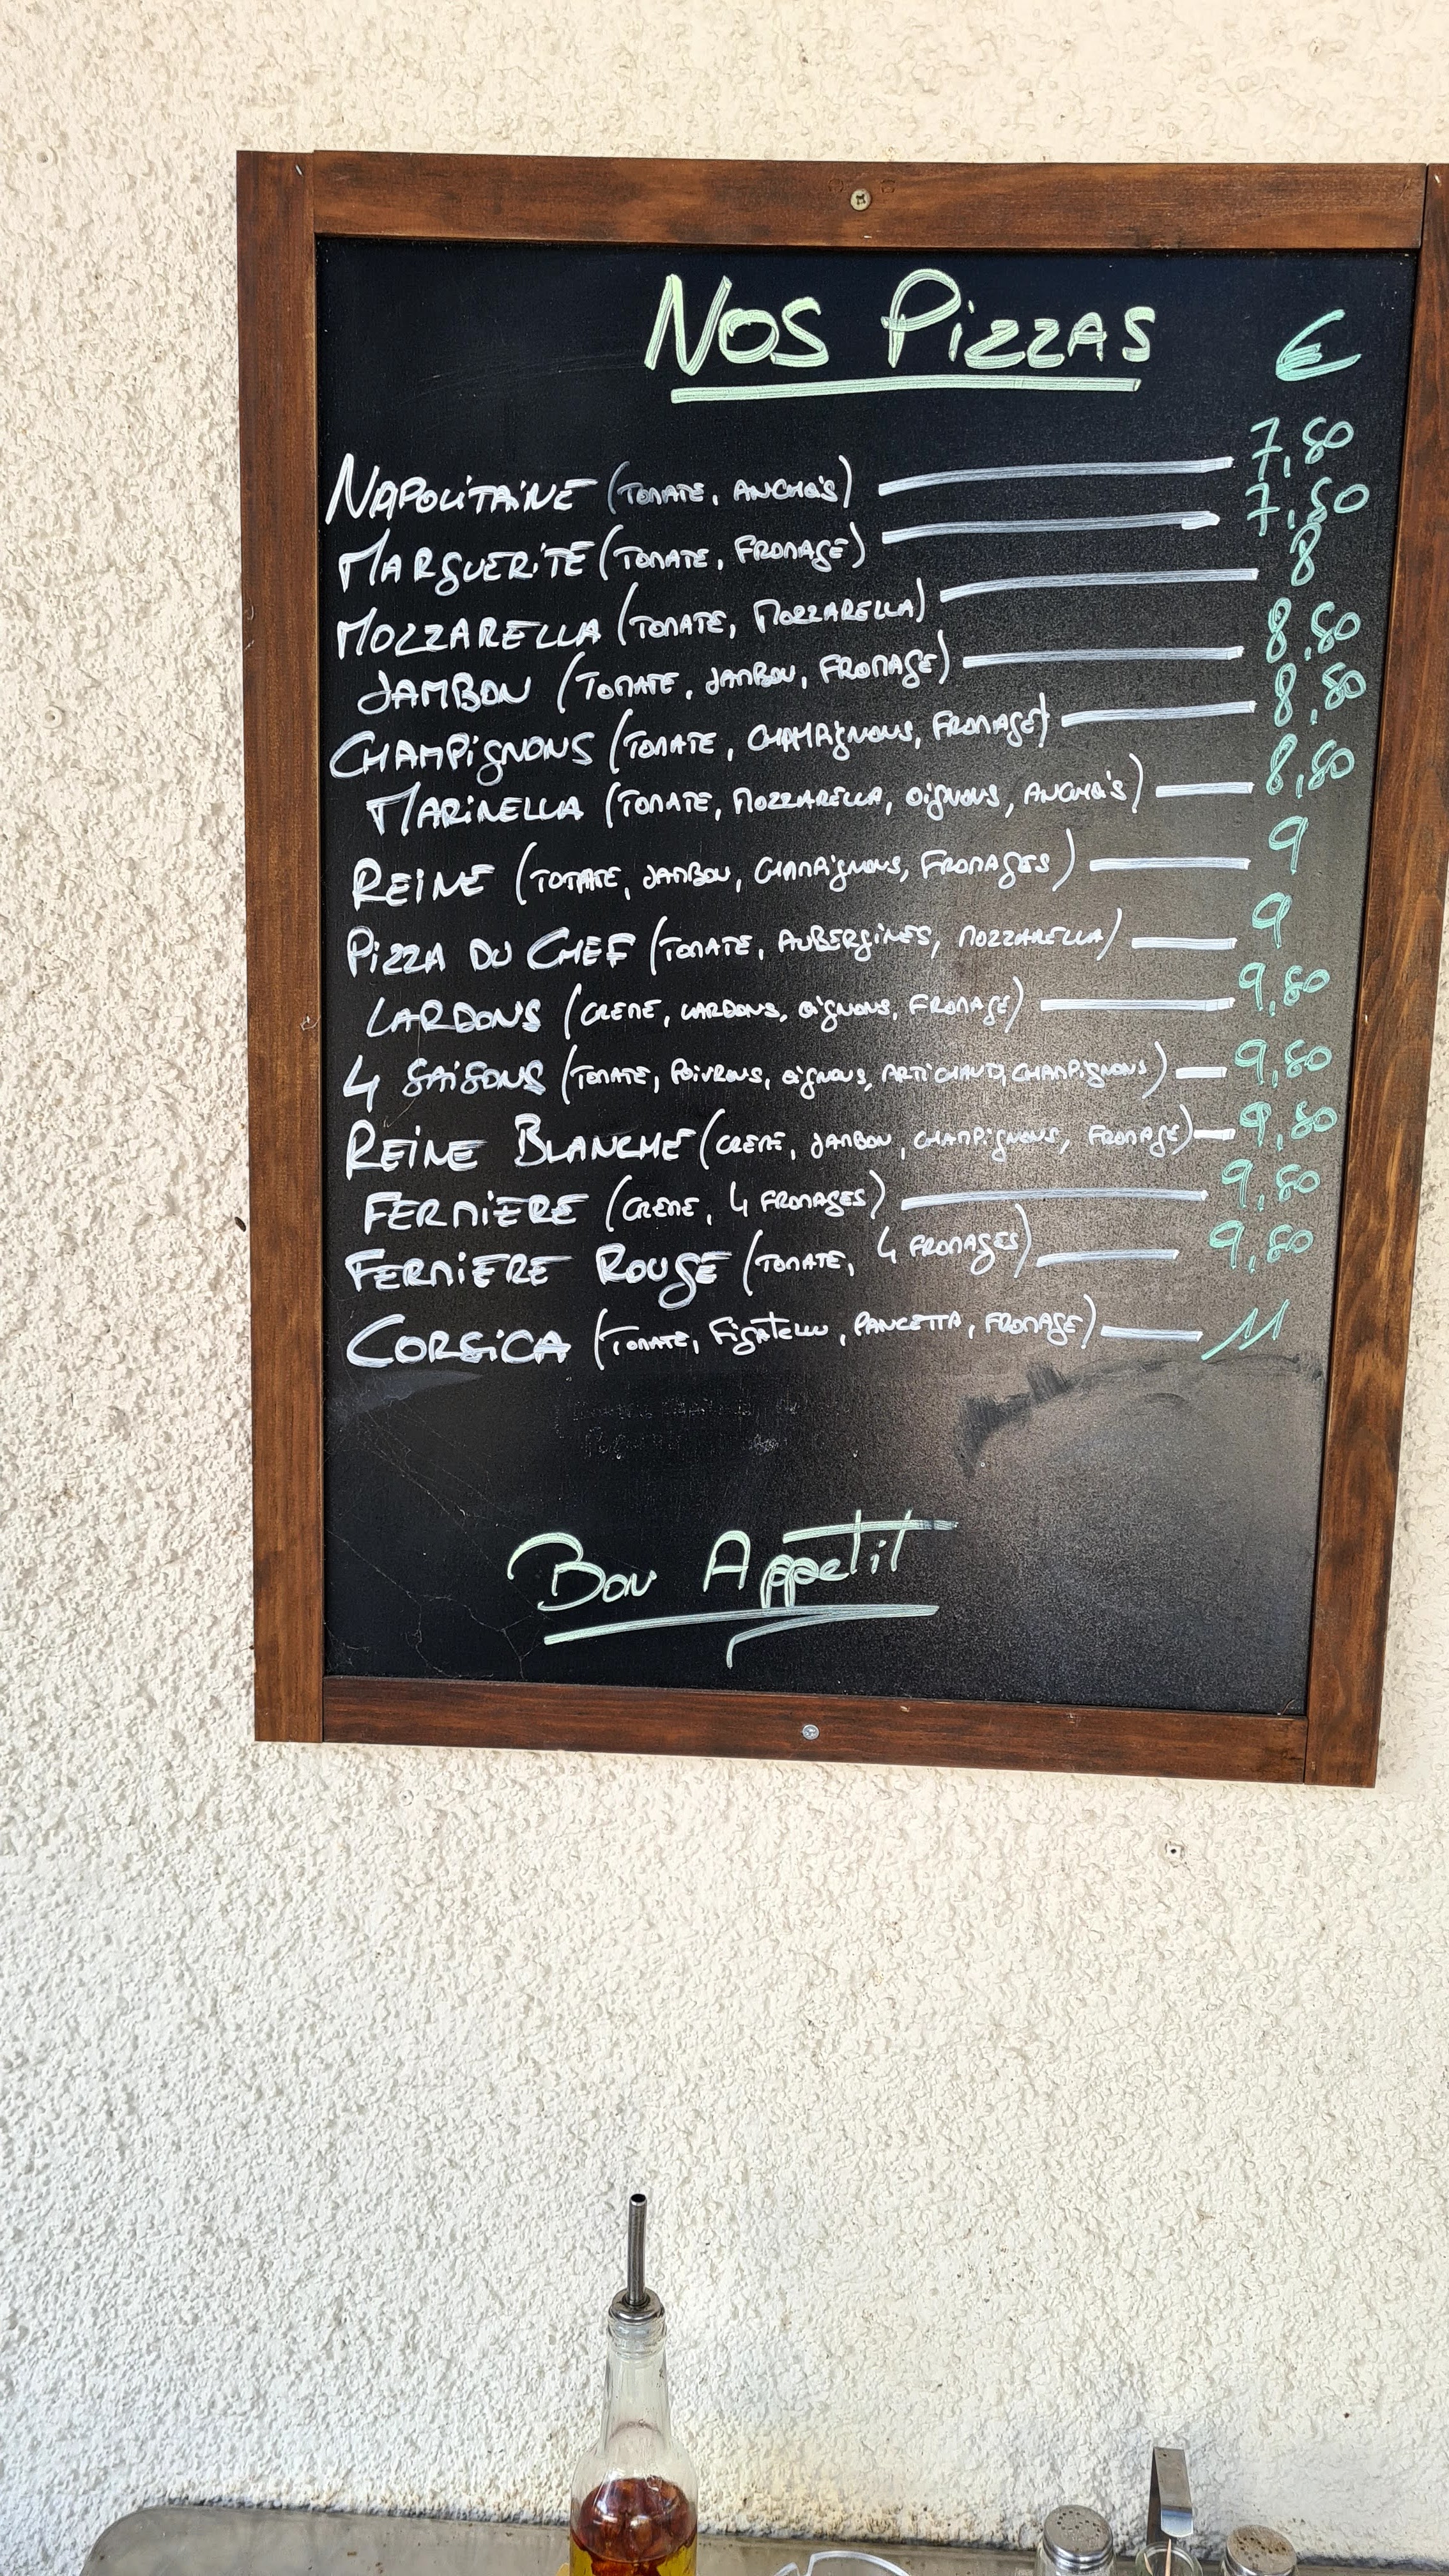 NOS PIZZAS €
NAPOLITAINE (TOMATE, ANCHOIS) 7,50
MARGUERITE (TOMATE, FROMAGE) 7,50
MOZZARELLA (TOMATE, MOZZARELLA) 8
JAMBON (TOMATE, JAMBON, FROMAGE) 8,50
CHAMPIGNONS (TOMATE, CHAMPIGNONS, FROMAGE) 8,50
MARINELLA (TOMATE, MOZZARELLA, OIGNONS, ANCHOIS) 8,50
REINE (TOMATE, JAMBON, CHAMPIGNONS, FROMAGES) 9
PIZZA DU CHEF (TOMATE, AUBERGINES, MOZZARELLA) 9
LARDONS (CREME, LARDONS, OIGNONS, FROMAGE) 9,50
4 SAISONS (TOMATE, POIVRONS, OIGNONS, ARTICHAUD, CHAMPIGNONS) 9,50
REINE BLANCHE (CREME, JAMBON, CHAMPIGNONS, FROMAGE) 9,50
FERMIERE (CREME, 4 FROMAGES) 9,50
FERMIERE ROUGE (TOMATE, 4 FROMAGES) 9,50
CORSICA (TOMATE, FIGATELLU, PANCETTA, FROMAGE) 11
Bon Appetit